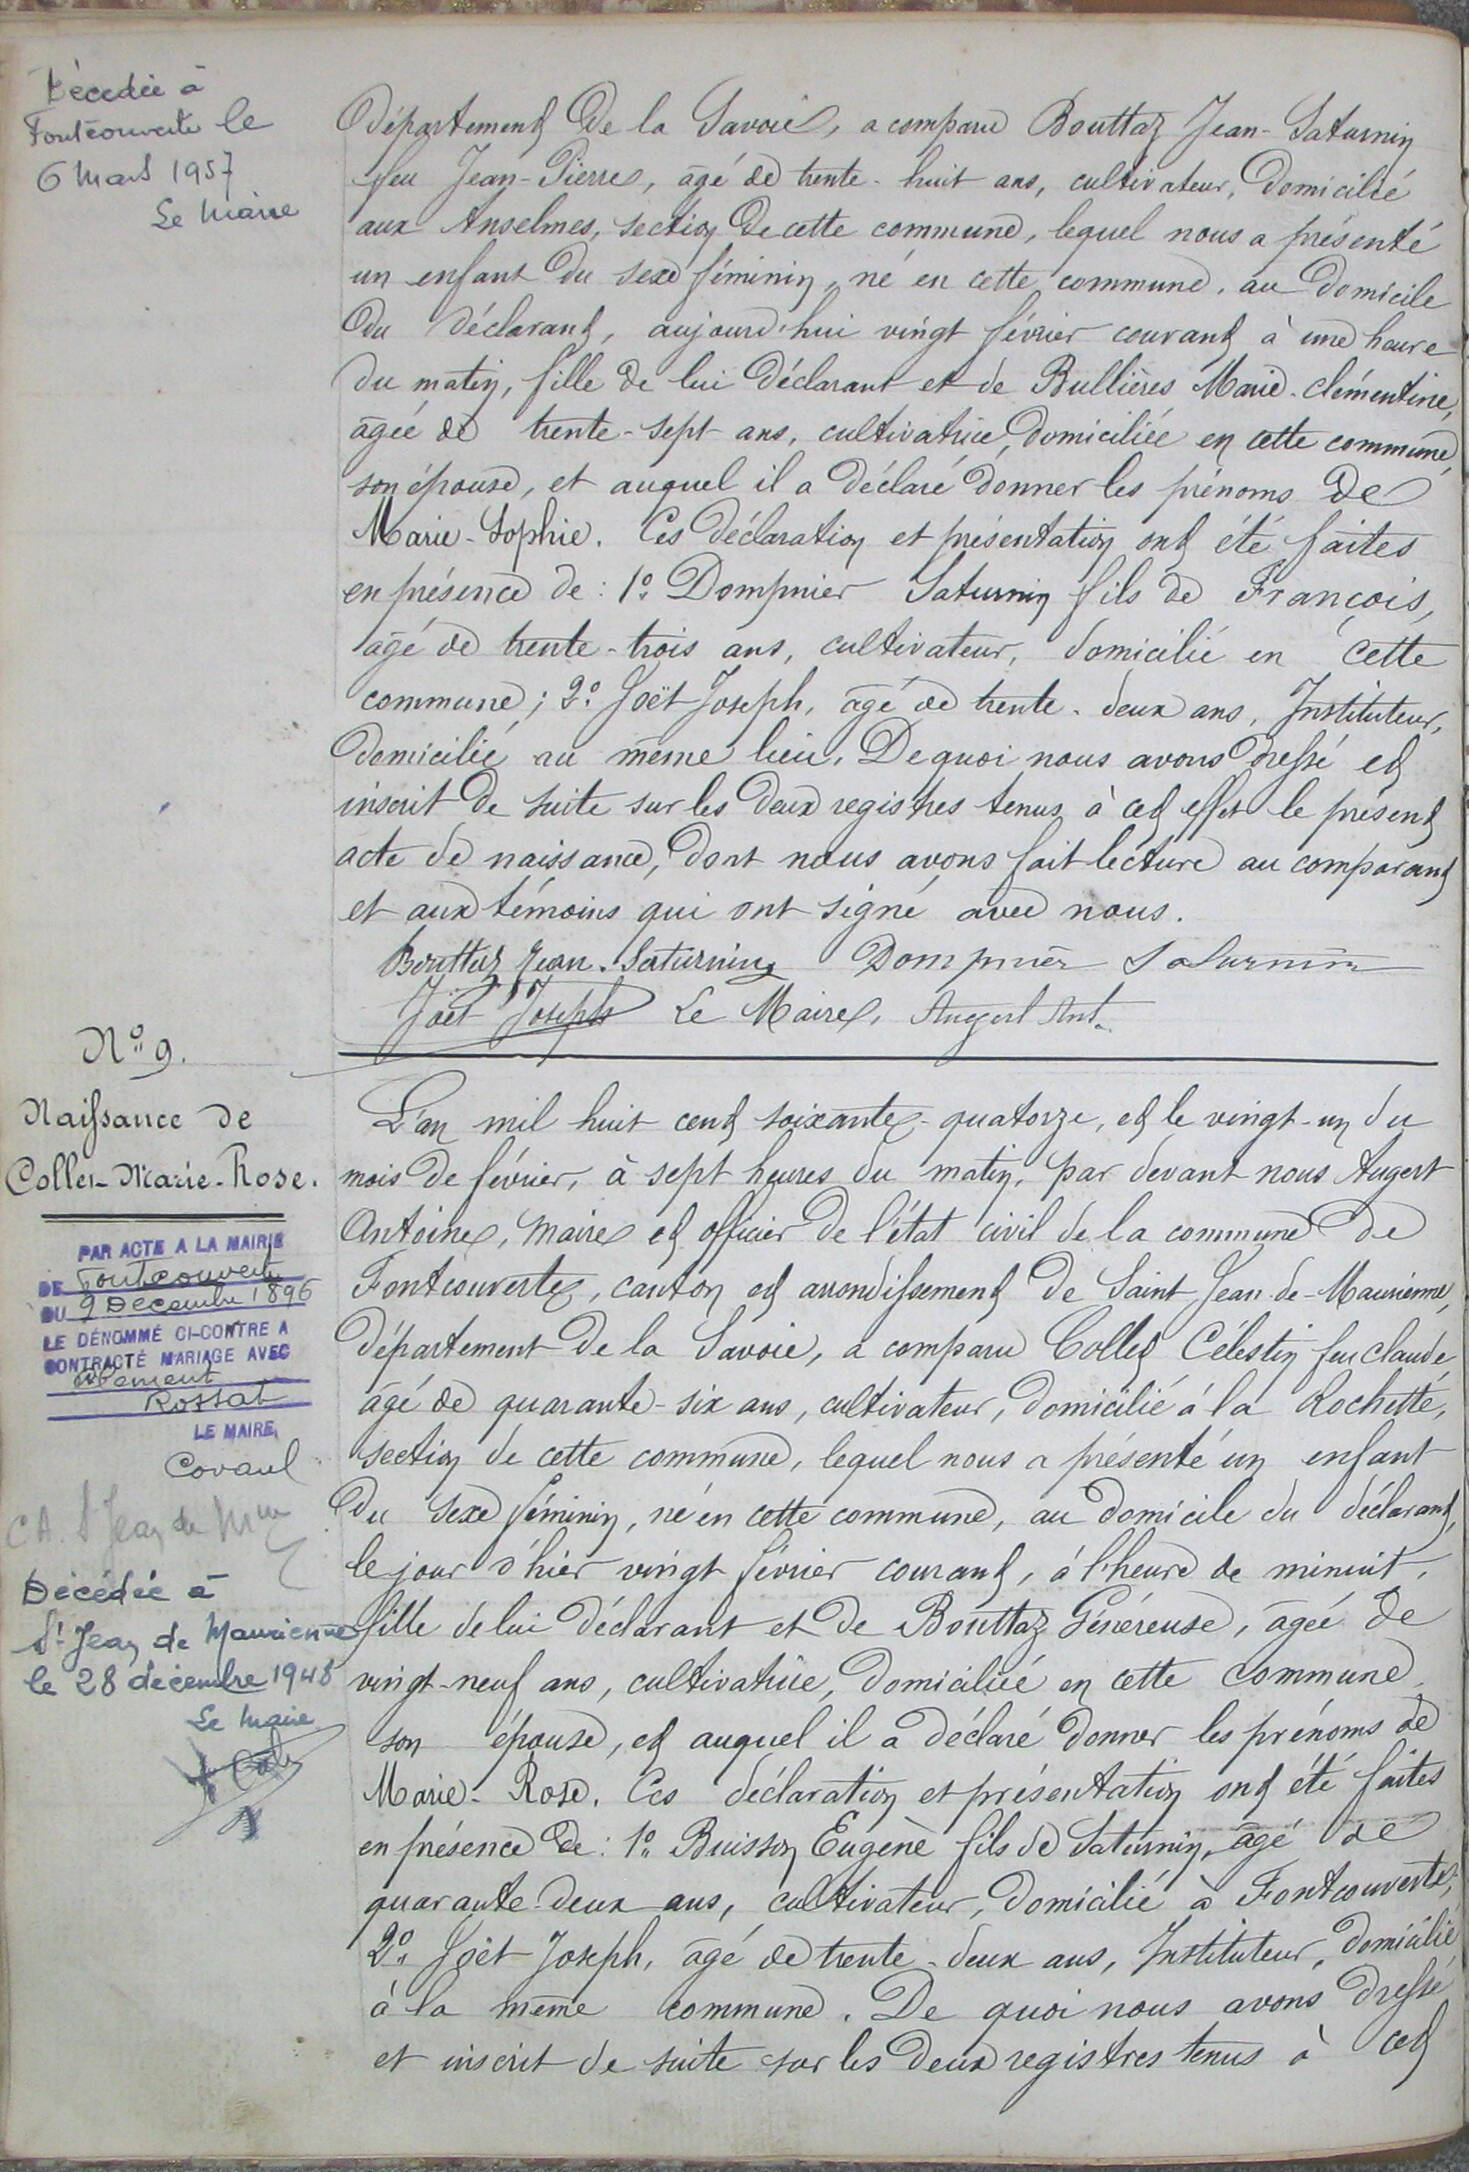 Décédée à
Fontcouverte le
6 Mars 1957
Le Maire
Département de la Savoie, a comparu Bouttaz Jean-Saturnin
feu Jean-Pierre, âgé de trente-huit ans, cultivateur, domicilié
aux Anselmes, section de cette commune, lequel nous a présenté
un enfant du sexe féminin, né en cette commune, au domicile
du déclarant, aujourd'hui vingt février courant à une heure
du matin, fille de lui déclarant et de Bullières Marie-Clémentine,
âgée de trente-sept ans, cultivatrice, domiciliée en cette commune,
son épouse, et auquel il a déclaré donner les prénoms de
Marie-Sophie. Ces déclaration et présentation ont été faites
en présence de : 1° Dompnier Saturnin fils de François,
âgé de trente-trois ans, cultivateur, domicilié en cette
commune ; 2° Joët Joseph, âgé de trente-deux ans, Instituteur,
domicilié au même lieu. De quoi nous avons dressé et
inscrit de suite sur les deux registres tenus à cet effet le présent
acte de naissance, dont nous avons fait lecture au comparant
et aux témoins qui ont signé avec nous.
Bouttaz Jean-Saturnin Dompnier Saturnin
Joët Joseph Le Maire, Augert Ant.
N° 9.
Naissance de
Collet-Marie-Rose.
PAR ACTE A LA MAIRIE
DE Fontcouverte
DU 9 Décembre 1896
LE DÉNOMMÉ CI-CONTRE A
CONTRACTÉ MARIAGE AVEC
Rossat
LE MAIRE,
Covarel
C.A. St Jean de Mne
Décédée à
St Jean de Maurienne
le 28 décembre 1948
Le Maire
L'an mil huit cent soixante-quatorze, et le vingt-un du
mois de février, à sept heures du matin, par devant nous Augert
Antoine, Maire et officier de l'état civil de la commune de
Fontcouverte, canton et arrondissement de Saint Jean-de-Maurienne,
département de la Savoie, a comparu Collet Célestin feu Claude,
âgé de quarante-six ans, cultivateur, domicilié à la Rochette,
section de cette commune, lequel nous a présenté un enfant
du sexe féminin, né en cette commune, au domicile du déclarant,
le jour d'hier vingt février courant, à l'heure de minuit,
fille de lui déclarant et de Bouttaz Généreuse, âgée de
vingt-neuf ans, cultivatrice, domiciliée en cette commune
son épouse, et auquel il a déclaré donner les prénoms de
Marie-Rose. Ces déclaration et présentation ont été faites
en présence de : 1° Buisson Eugène fils de Saturnin, âgé de
quarante-deux ans, cultivateur, domicilié à Fontcouverte,
2° Joët Joseph, âgé de trente-deux ans, Instituteur, domicilié
à la même commune. De quoi nous avons dressé
et inscrit de suite sur les deux registres tenus à cet